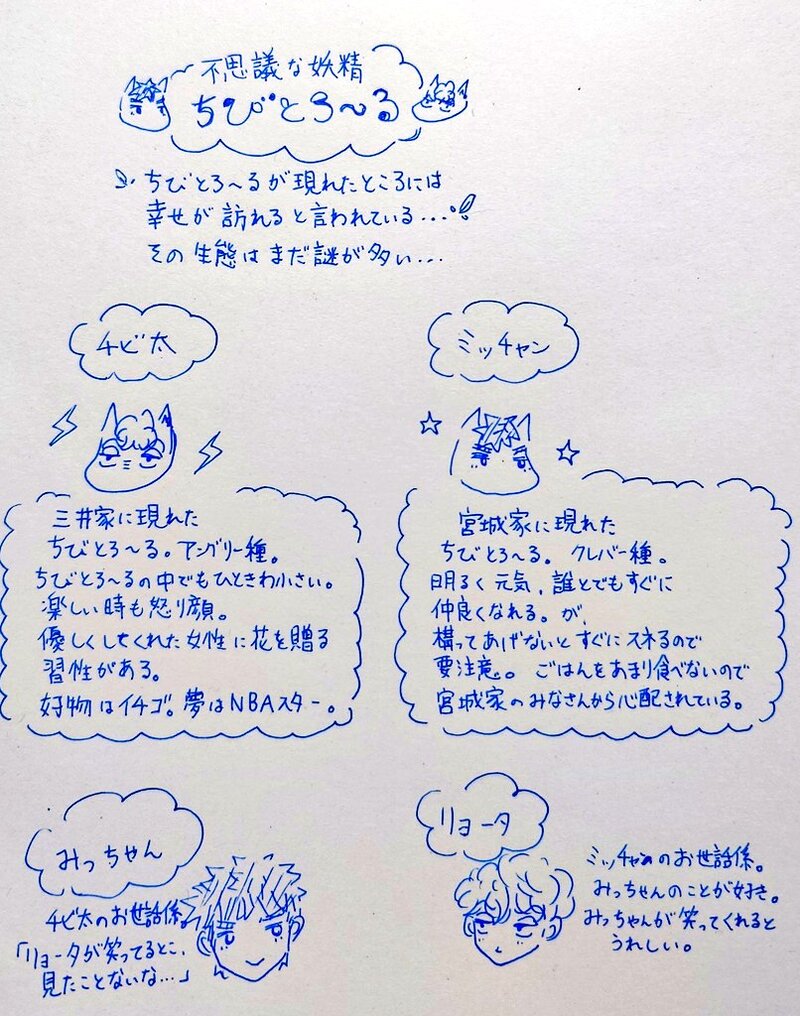 不思議な妖精
ちびとろ〜る
ちびとろ〜るが現れたところには
幸せが訪れると言われている...!!
その生態はまだ謎が多い...
チビ太
ミッチャン
三井家に現れた
ちびとろ〜る。アングリー種。
ちびとろ〜るの中でもひときわ小さい。
楽しい時も怒り顔。
優しくしてくれた女性に花を贈る
習性がある。
好物はイチゴ。夢はNBAスター。
宮城家に現れた
ちびとろ〜る。クレバー種。
明るく元気、誰とでもすぐに
仲良くなれる。が、
構ってあげないとすぐにスネるので
要注意。ごはんをあまり食べないので
宮城家のみなさんから心配されている。
みっちゃん
チビ太のお世話係。
「リョータが笑ってるとこ、
見たことないな...」
リョータ
ミッチャンのお世話係。
みっちゃんのことが好き。
みっちゃんが笑ってくれると
うれしい。